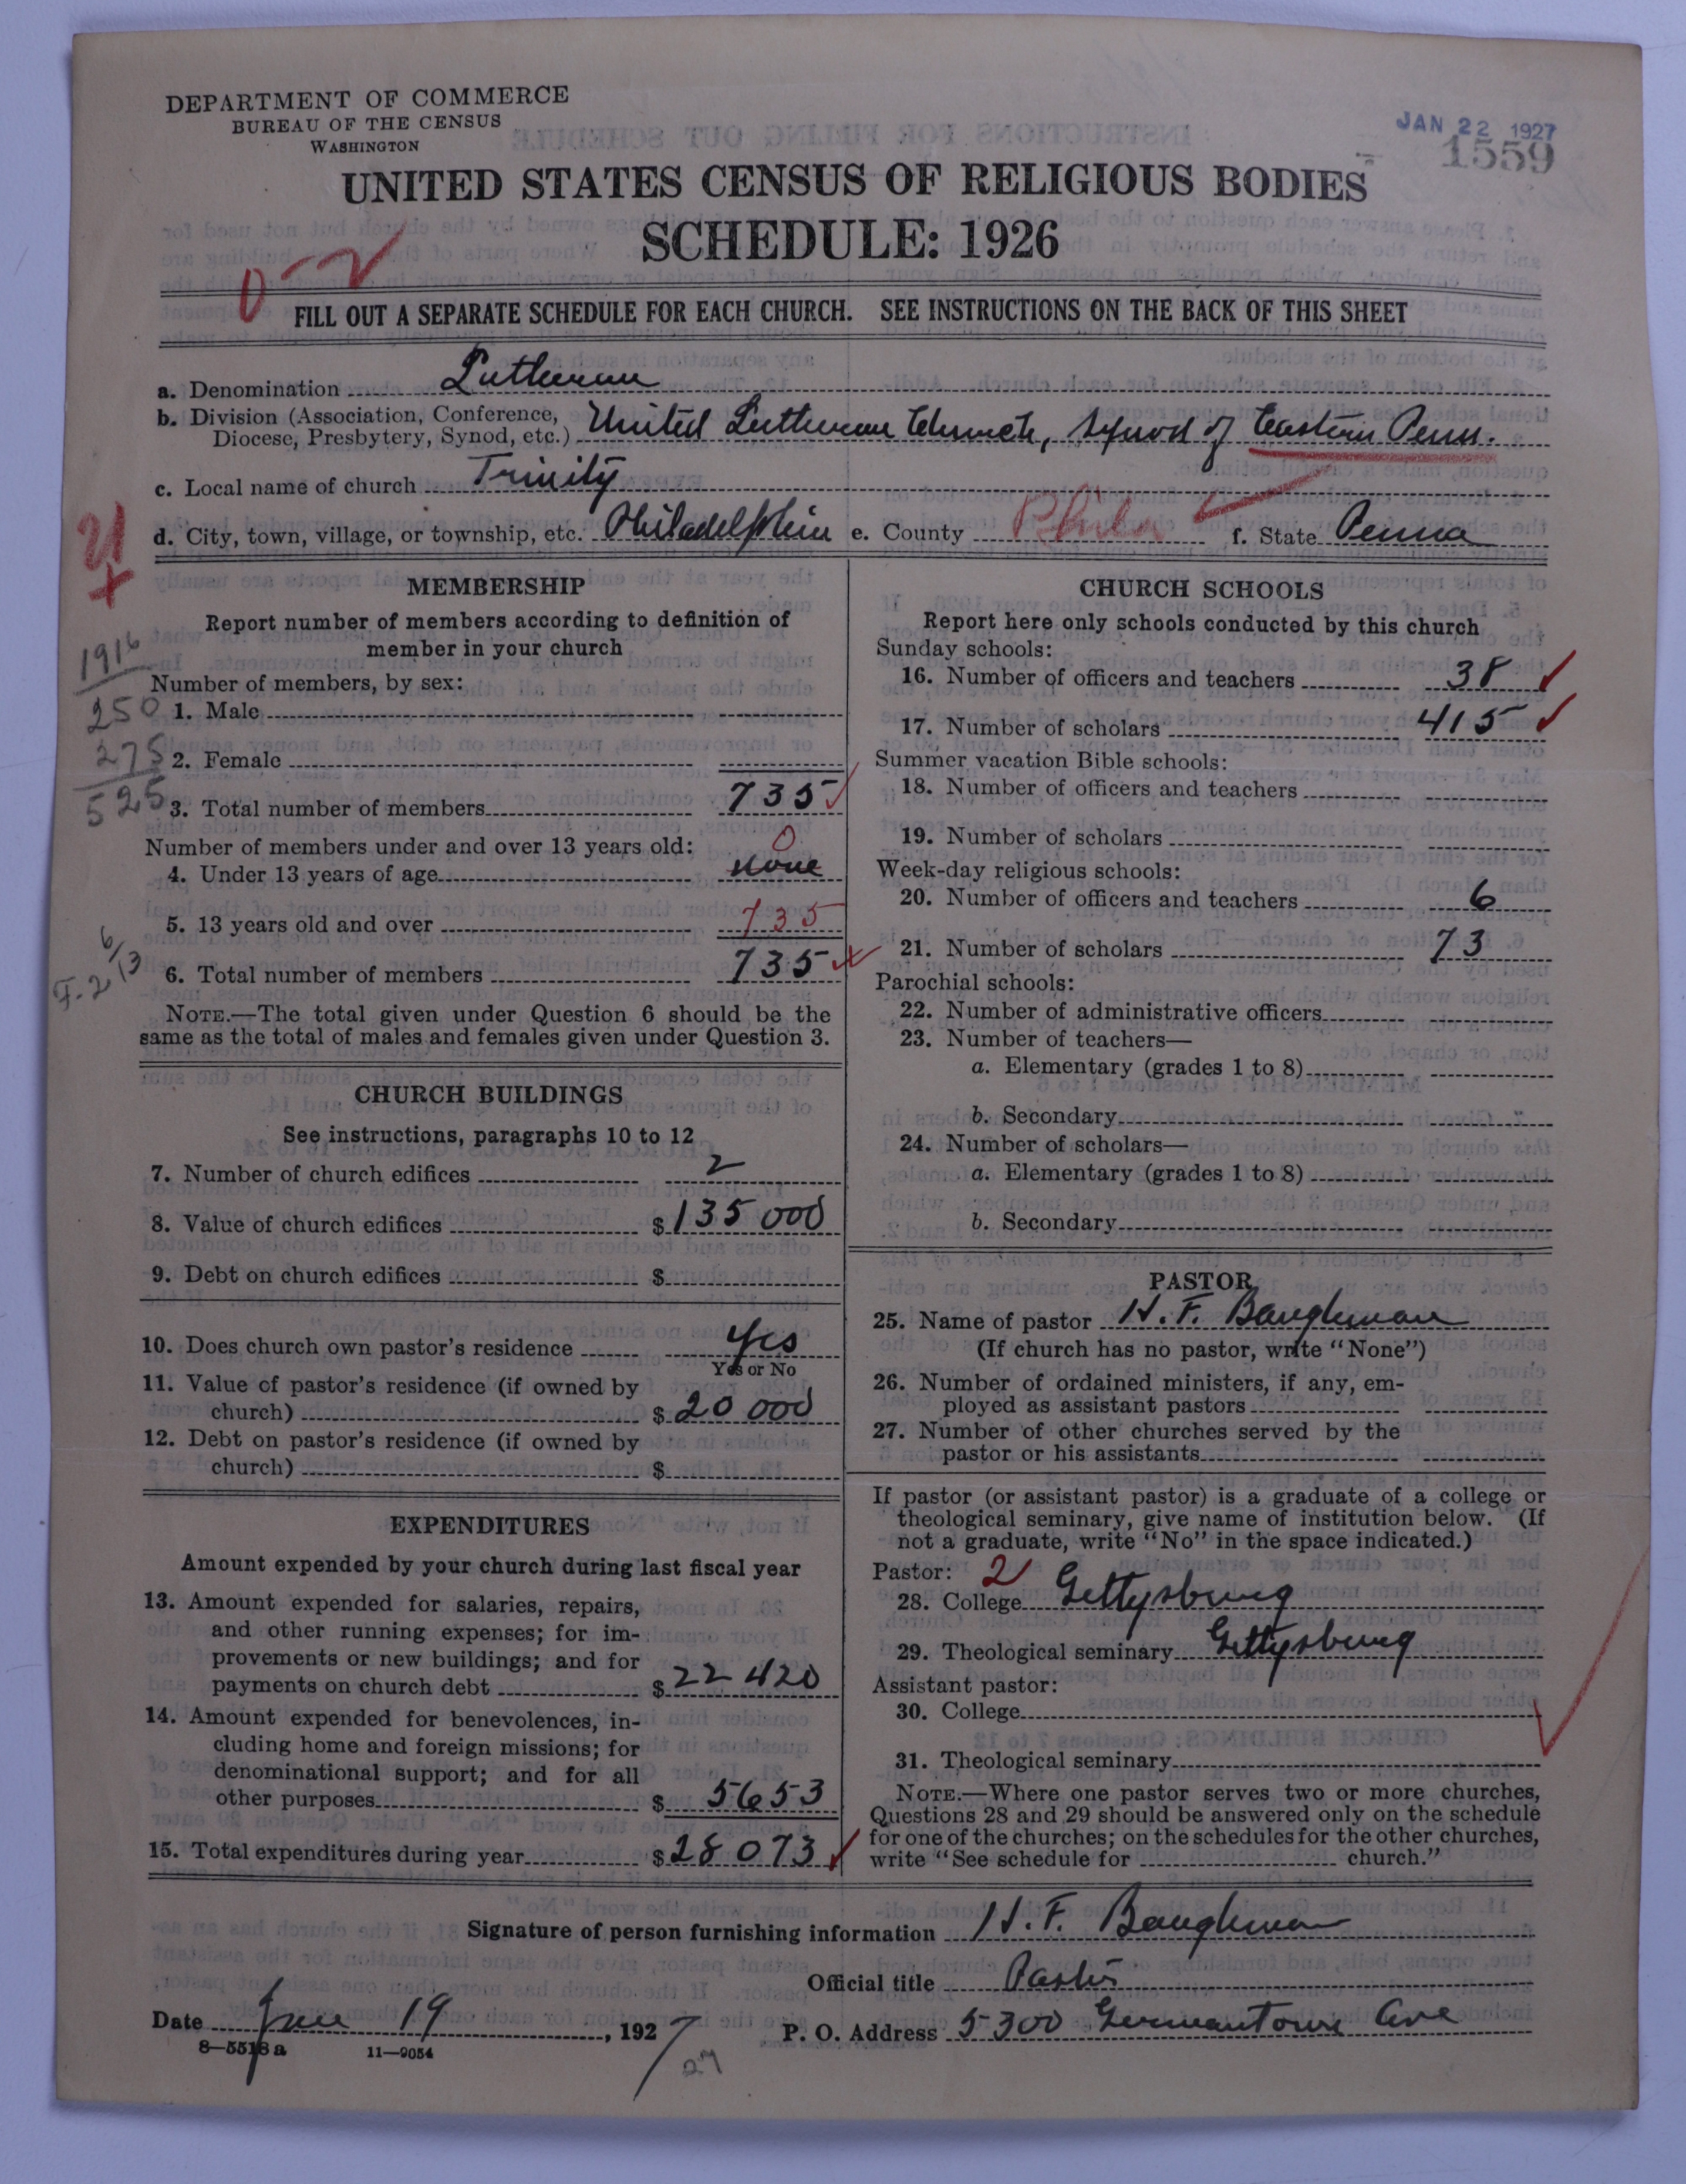 DEPARTMENT OF COMMERCE
BUREAU OF THE CENSUS
WASHINGTON
JAN 22 1927
1559
UNITED STATES CENSUS OF RELIGIOUS BODIES
SCHEDULE: 1926
FILL OUT A SEPARATE SCHEDULE FOR EACH CHURCH. SEE INSTRUCTIONS ON THE BACK OF THIS SHEET
a. Denomination Lutheran
b. Division (Association, Conference, Diocese, Presbytery, Synod, etc.) United Lutheran Church, Synod of Eastern Penn.
c. Local name of church Trinity
d. City, town, village, or township, etc. Philadelphia e. County Phila f. State Penna
MEMBERSHIP
Report number of members according to definition of
member in your church
1916
Number of members, by sex:
250 1. Male
275 2. Female
525 3. Total number of members 735
Number of members under and over 13 years old:
0
4. Under 13 years of age none
5. 13 years old and over 735
6. Total number of members 735
NOTE.—The total given under Question 6 should be the
same as the total of males and females given under Question 3.
CHURCH BUILDINGS
See instructions, paragraphs 10 to 12
7. Number of church edifices 2
8. Value of church edifices $135 000
9. Debt on church edifices $
10. Does church own pastor's residence Yes
Yes or No
11. Value of pastor's residence (if owned by
church) $20 000
12. Debt on pastor's residence (if owned by
church) $
EXPENDITURES
Amount expended by your church during last fiscal year
13. Amount expended for salaries, repairs,
and other running expenses; for im-
provements or new buildings; and for
payments on church debt $22 420
14. Amount expended for benevolences, in-
cluding home and foreign missions; for
denominational support; and for all
other purposes $ 5653
15. Total expenditures during year $28 073
CHURCH SCHOOLS
Report here only schools conducted by this church
Sunday schools:
16. Number of officers and teachers 38
17. Number of scholars 415
Summer vacation Bible schools:
18. Number of officers and teachers
19. Number of scholars
Week-day religious schools:
20. Number of officers and teachers 6
21. Number of scholars 73
Parochial schools:
22. Number of administrative officers
23. Number of teachers—
a. Elementary (grades 1 to 8)
b. Secondary
24. Number of scholars—
a. Elementary (grades 1 to 8)
b. Secondary
PASTOR
25. Name of pastor H. F. Baughman
(If church has no pastor, write "None")
26. Number of ordained ministers, if any, em-
ployed as assistant pastors
27. Number of other churches served by the
pastor or his assistants
If pastor (or assistant pastor) is a graduate of a college or
theological seminary, give name of institution below. (If
not a graduate, write "No" in the space indicated.)
Pastor: 2
28. College Gettysburg
29. Theological seminary Gettysburg
Assistant pastor:
30. College
31. Theological seminary
NOTE.—Where one pastor serves two or more churches,
Questions 28 and 29 should be answered only on the schedule
for one of the churches; on the schedules for the other churches,
write "See schedule for church."
Signature of person furnishing information H. F. Baughman
Official title Pastor
Date 19, 1927 P. O. Address 5300 Germantown Ave
8—5518 a 11—9054
27